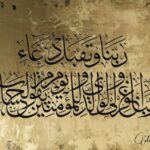 ربنا وتقبل دعاء
ربنا اغفر لي ولوالدي وللمؤمنين يوم يقوم الحساب